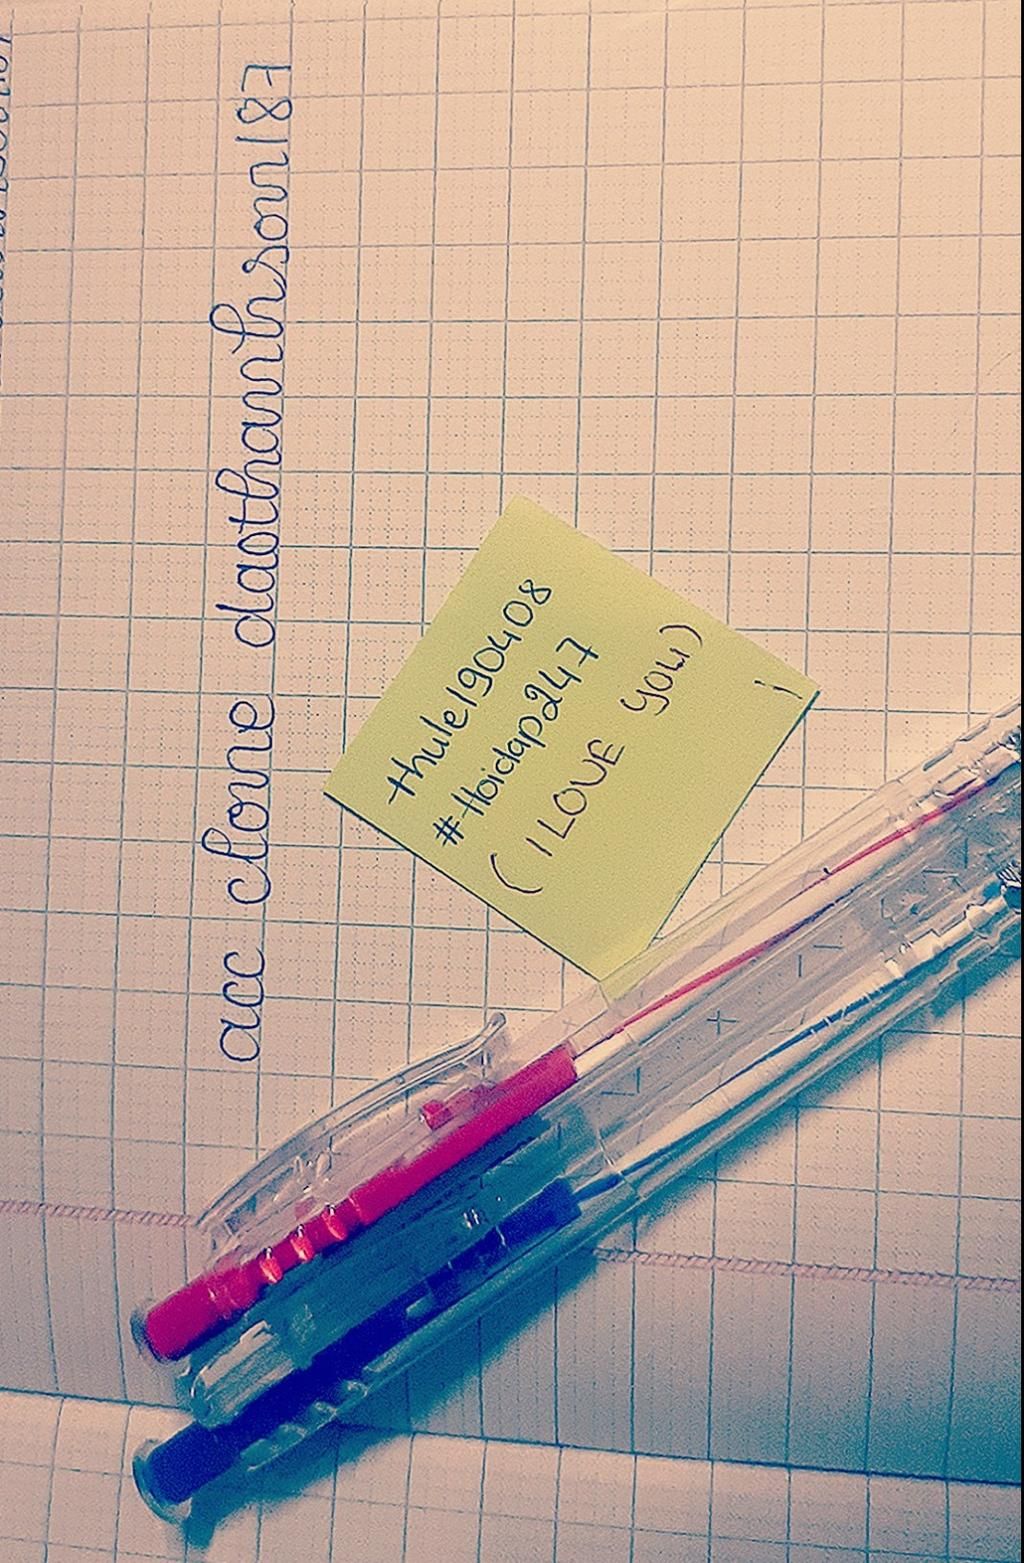 acc clone daothanhson187
thule190408
#Hoidap247
( I LOVE you)